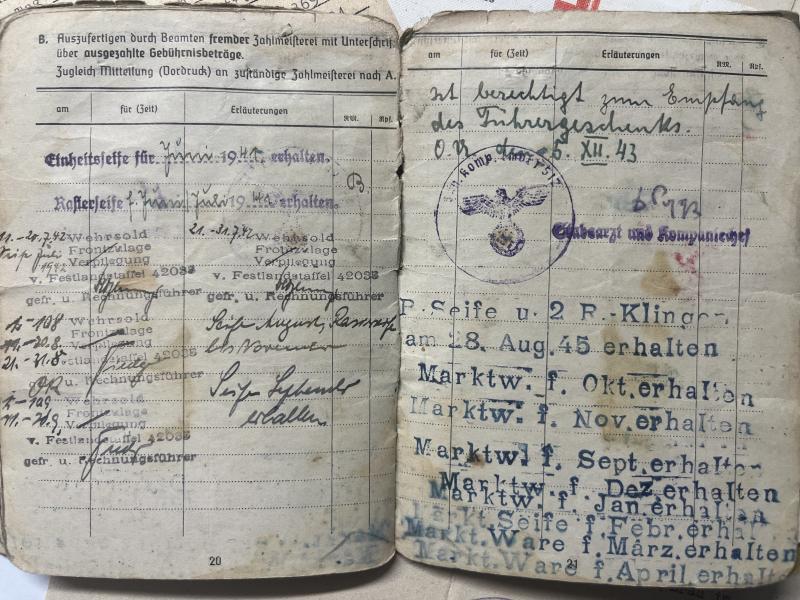 B. Auszufertigen durch Beamten fremder Zahlmeisterei mit Unterschrift
über ausgezahlte Gebührnisbeträge.
Zugleich Mitteilung (Vordruck) an zuständige Zahlmeisterei nach A.
am für (Zeit) Erläuterungen
RM. Rpf.
Einheitsseife für Juni 1941 erhalten.
Rasierseife f. Juni, Juli 1941 erhalten.
B.
11.-20.7.42 Wehrsold
Frontzulage
Juli Verpflegung
1942
v. Festlandstaffel 42033
gefr. u. Rechnungsführer
21.-31.7.42 Wehrsold
Frontzulage
Verpflegung
v. Festlandstaffel 42033
gefr. u. Rechnungsführer
1.-10.8 Wehrsold
Frontzulage
11.-20.8. Verpflegung
21.-31.8. Festlandstaffel 42033
u. Rechnungsführer
Seife August, Rasierseife
bis November
Wehrsold
Frontzulage
11.-20.9. Verpflegung
v. Festlandstaffel 42033
gefr. u. Rechnungsführer
Seife September
erhalten
20
am für (Zeit) Erläuterungen
RM. Rpf.
Ist berechtigt zum Empfang
des Führergeschenks.
O.U. den 5. XII. 43
Stabsarzt und Kompaniechef
F.Seife u. 2 R.-Klingen
am 28. Aug.45 erhalten
Marktw. f. Okt.erhalten
Marktw. f. Nov.erhalten
Marktw. f. Sept.erhalten
Marktw. f. Dez.erhalten
Marktw. f. Jan.erhalten
Markt.Seife f. Febr.erhal
Markt.Ware f.März.erhalten
Markt.Ware f.April.erhalte
21